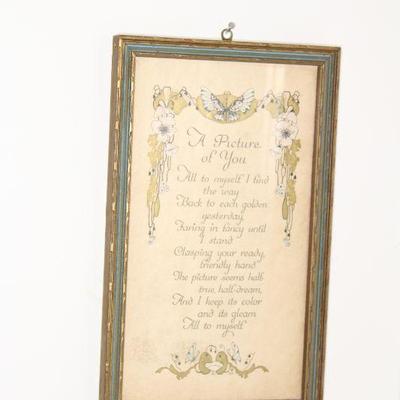 A Picture
of You
All to myself I find
the way
Back to each golden
yesterday,
Faring in fancy until
I stand
Clasping your ready,
friendly hand
The picture seems half-
true, half-dream,
And I keep its color
and its gleam
All to myself